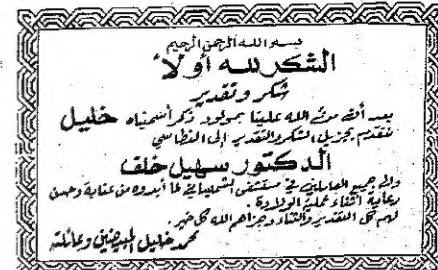 بسم الله الرحمن الرحيم
الشكر لله أولاً
شكر وتقدير
بعد أن منّ الله علينا بمولود ذكر أسميناه خليل
نتقدم بجزيل الشكر والتقدير إلى النطاسي
الدكتور سهيل خلف
وإلى جميع العاملين في مستشفى الشميساني لما أبدوه من عناية وحسن
رعاية أثناء عملية الولادة.
لهم كل التقدير والثناء وجزاهم الله كل خير.
محمد خليل وعائلته